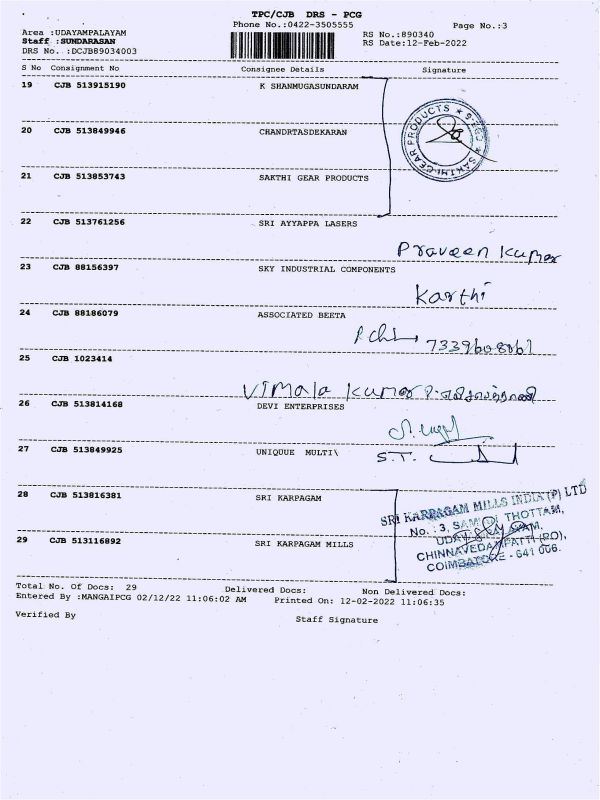 TPC/CJB DRS - PCG
Phone No.:0422-3505555
Page No.:3
Area :UDAYAMPALAYAM
Staff :SUNDARASAN
DRS No. :DCJB89034003
RS No.:890340
RS Date:12-Feb-2022
S No Consignment No Consignee Details Signature
19 CJB 513915190 K SHANMUGASUNDARAM
20 CJB 513849946 CHANDRTASDEKARAN
SAKTHI GEAR PRODUCTS
21 CJB 513853743 SAKTHI GEAR PRODUCTS
22 CJB 513761256 SRI AYYAPPA LASERS
Praveen Kumar
23 CJB 88156397 SKY INDUSTRIAL COMPONENTS
Karthi
24 CJB 88186079 ASSOCIATED BEETA
25 CJB 1023414
Vimala Kumar
26 CJB 513814168 DEVI ENTERPRISES
27 CJB 513849925 UNIQUUE MULTI\
S.T.
28 CJB 513816381 SRI KARPAGAM
29 CJB 513116892 SRI KARPAGAM MILLS
SRI KARPAGAM MILLS INDIA (P) LTD
No. : 3, THOTTAM,
CHINNAVEDAMPATTI (PO),
COIMBATORE - 641 006.
Total No. Of Docs: 29 Delivered Docs: Non Delivered Docs:
Entered By :MANGAIPCG 02/12/22 11:06:02 AM Printed On: 12-02-2022 11:06:35
Verified By Staff Signature